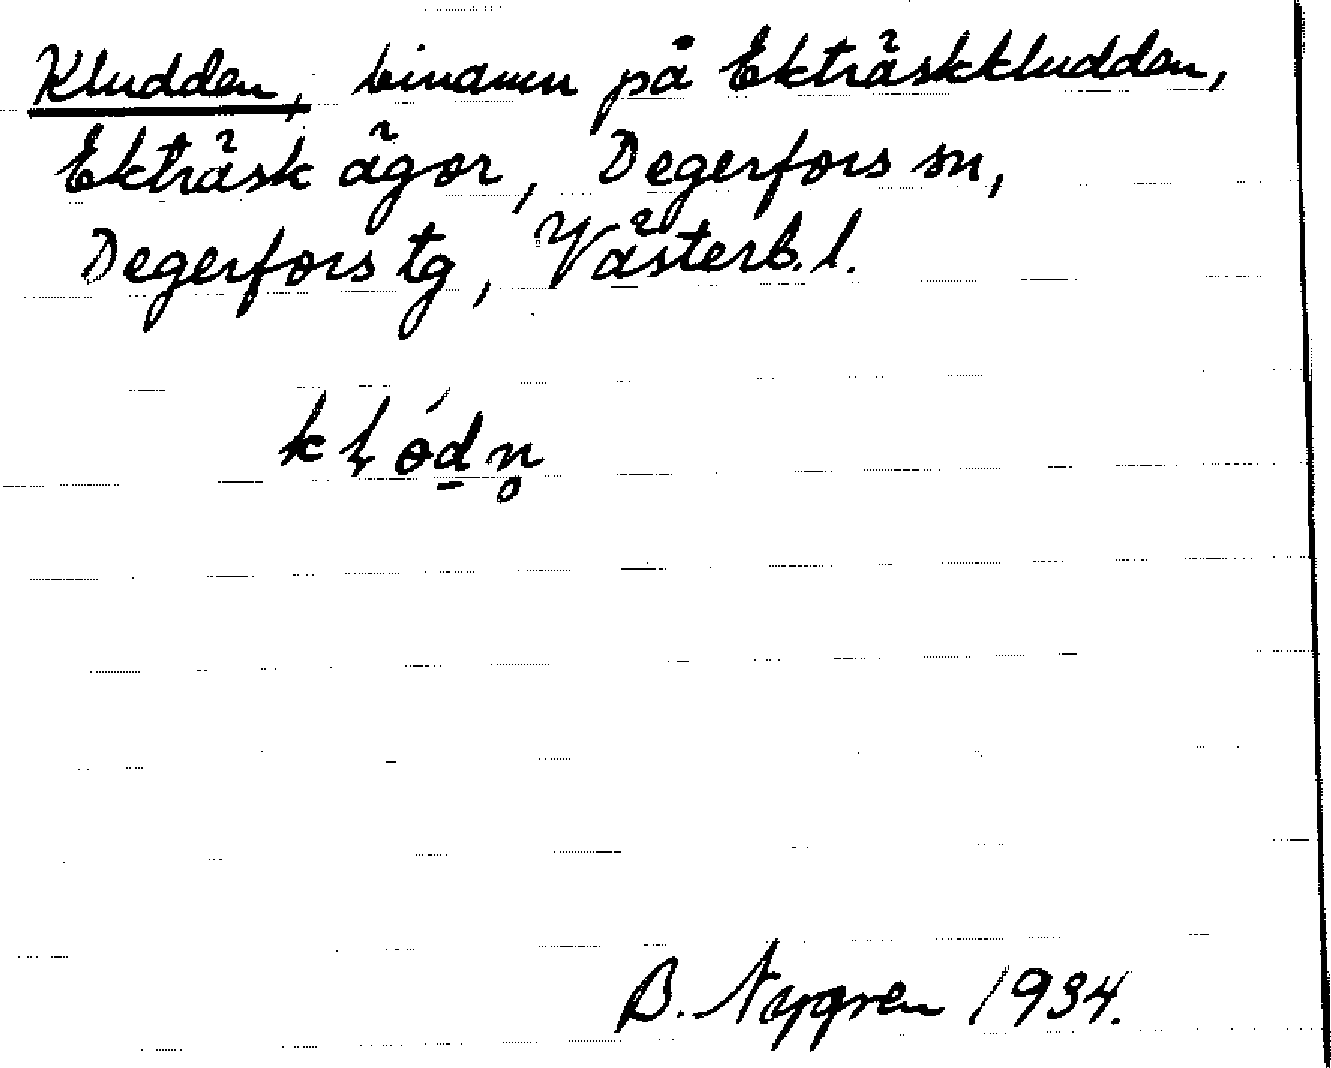 Kludden, binamn på Ekträskkludden,
Ekträsk ägor, Degerfors sn,
Degerfors tg, Västerb. l.
kɫɵ́d̠n̥
B. Nygren 1934.